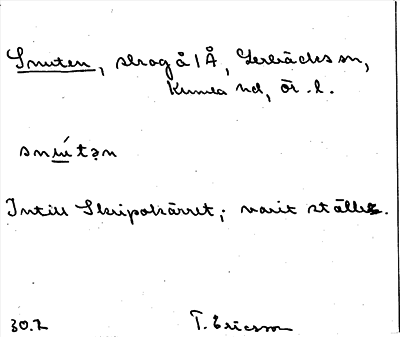 Snuten, skog å 1 Å, Lerbäcks sn,
Kumla hd, Ör. l.
snʉ́tən
Intill Skripakärret; varit ställe.
30.7 T. Ericsson